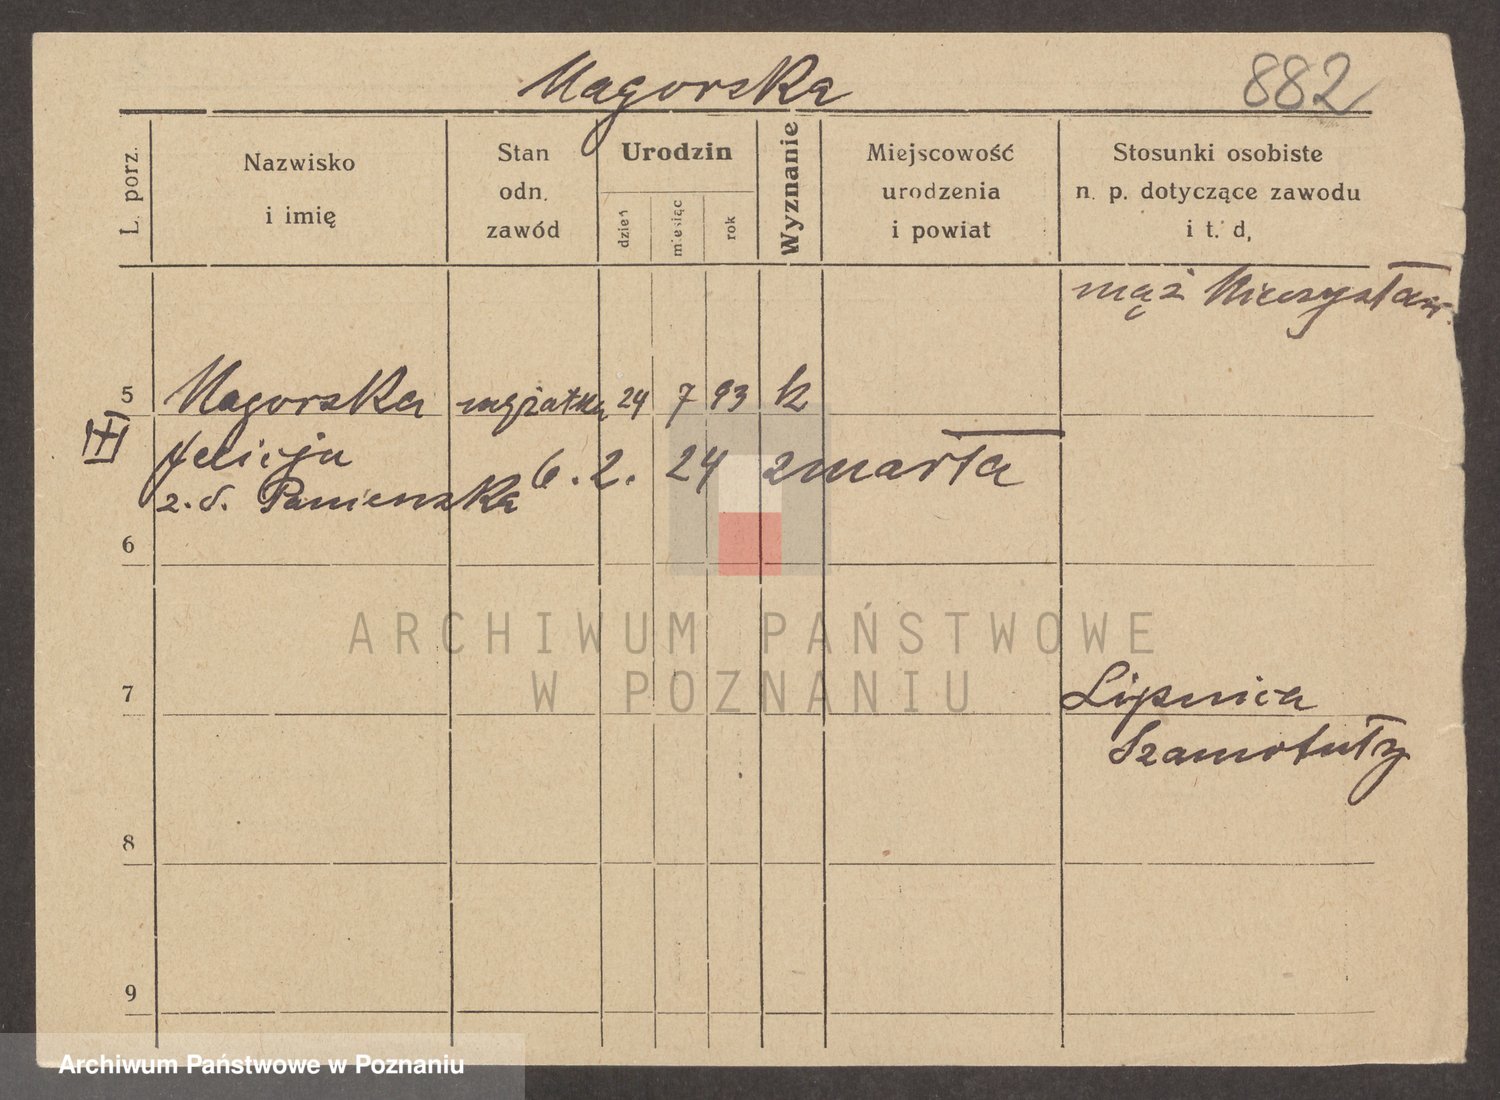 Magorska
882
L. porz.
Nazwisko
i imię
Stan
odn.
zawód
Urodzin
dzień
miesiąc
rok
Wyznanie
Miejscowość
urodzenia
i powiat
Stosunki osobiste
n. p. dotyczące zawodu
i t. d.
mąż Mieczysław.
5 Magorska mężatka 24 7 93 k
Felicja
z. d. Panienska 6. 2. 24 zmarła
6
ARCHIWUM PAŃSTWOWE
W POZNANIU
7 Lipnica
Szamotuły
8
9
Archiwum Państwowe w Poznaniu